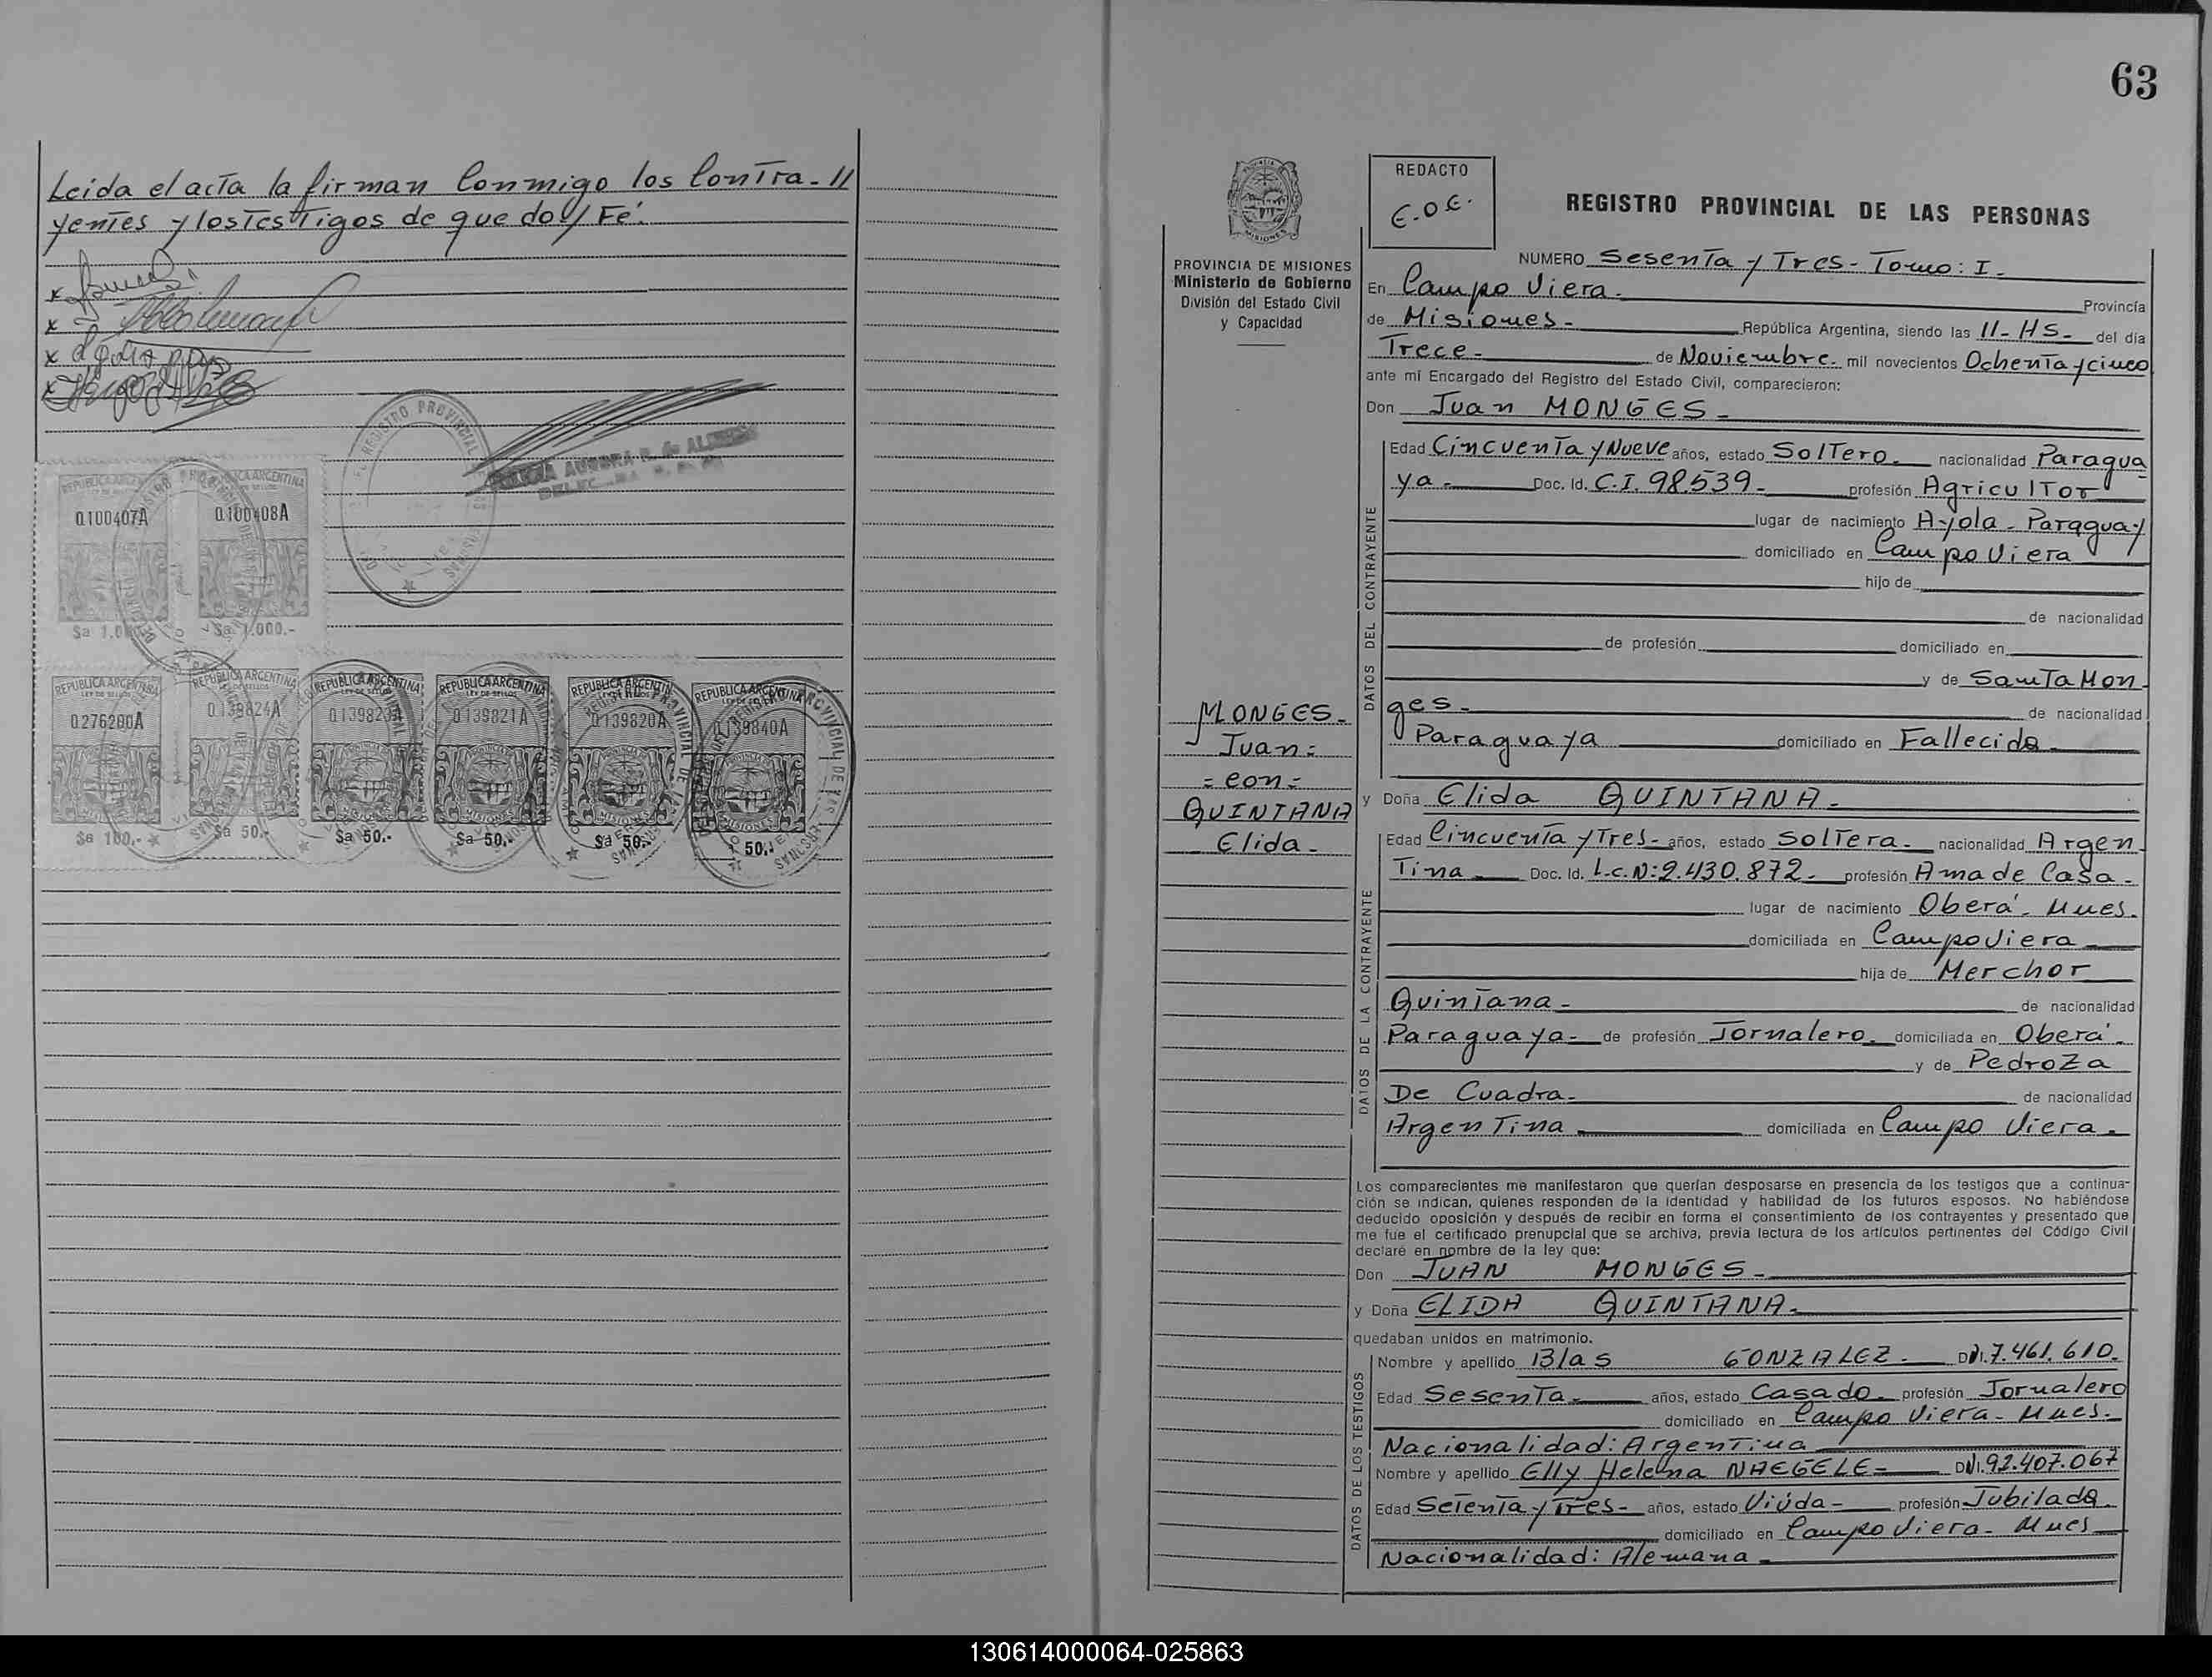 Leida el acta la firman Conmigo los Contra-//
yentes y los testigos de que doy Fé.
x
x
x
x
REGISTRO PROVINCIAL
REPUBLICA ARGENTINA
LEY DE SELLOS
0.100407A
0.100408A
$a 1.000.-
$a 1.000.-
REPUBLICA ARGENTINA
LEY DE SELLOS
0.276200A
0.139824A
0.139821A
0.139820A
0.139840A
$a 100,-
$a 50,-
$a 50,-
$a 50,-
$a 50,-
50,-
63
PROVINCIA DE MISIONES
Ministerio de Gobierno
División del Estado Civil
y Capacidad
REDACTO
E.O.E.
REGISTRO PROVINCIAL DE LAS PERSONAS
NUMERO Sesenta y Tres- Tomo: I-
En Campo Viera.- Provincia
de Misiones- República Argentina, siendo las 11-HS- del día
Trece- de Noviembre- mil novecientos Ochenta y cinco
ante mí Encargado del Registro del Estado Civil, comparecieron:
Don Juan MONGES-
DATOS DEL CONTRAYENTE
Edad Cincuenta y Nueve años, estado Soltero- nacionalidad Paragua
ya- Doc. Id. C.I. 98.539- profesión Agricultor
lugar de nacimiento Ayola- Paraguay
domiciliado en Campo Viera
hijo de
de nacionalidad
de profesión domiciliado en
y de Santa Mon
ges- de nacionalidad
Paraguaya domiciliado en Fallecida
MONGES-
Juan-
=con=
QUINTANA
Elida-
y Doña Elida QUINTANA-
DATOS DE LA CONTRAYENTE
Edad Cincuenta y Tres- años, estado Soltera- nacionalidad Argen
Tina Doc. Id. L.C.N:2.430.872- profesión Ama de Casa-
lugar de nacimiento Oberá- Mnes.
domiciliada en Campo Viera
hija de Merchor
Quintana- de nacionalidad
Paraguaya- de profesión Jornalero- domiciliada en Oberá-
y de Pedroza
De Cuadra- de nacionalidad
Argentina domiciliada en Campo Viera-
Los comparecientes me manifestaron que querían desposarse en presencia de los testigos que a continua-
ción se indican, quienes responden de la identidad y habilidad de los futuros esposos. No habiéndose
deducido oposición y después de recibir en forma el consentimiento de los contrayentes y presentado que
me fue el certificado prenupcial que se archiva, previa lectura de los artículos pertinentes del Código Civil
declaré en nombre de la ley que:
Don JUAN MONGES-
y Doña ELIDA QUINTANA-
quedaban unidos en matrimonio.
DATOS DE LOS TESTIGOS
Nombre y apellido Blas GONZALEZ- DNI.7.461.610-
Edad Sesenta- años, estado Casado- profesión Jornalero
domiciliado en Campo Viera- Mnes.
Nacionalidad: Argentina
Nombre y apellido Elly Helena NAEGELE- DNI.92.407.067
Edad Setenta y Tres- años, estado Viúda- profesión Jubilada
domiciliado en Campo Viera- Mnes
Nacionalidad: Alemana-
130614000064-025863